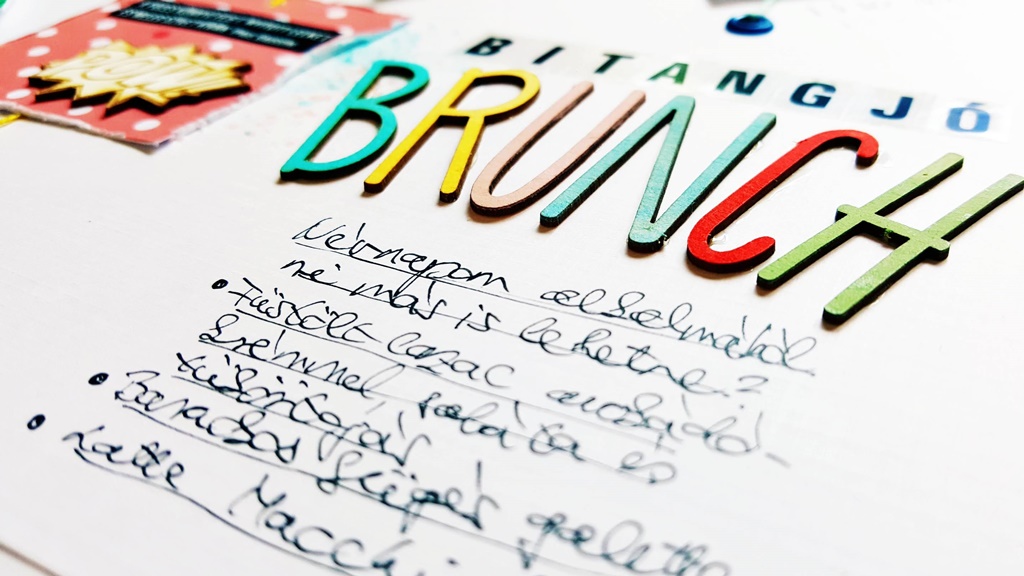 BITANGJÓ
BRUNCH
Névnapom alkalmából
mi más is lehetne?
• Füstölt lazac avokádó-
krémmel, saláta és
tükörtojás
• Barackos fügés galette
• Latte Macchi